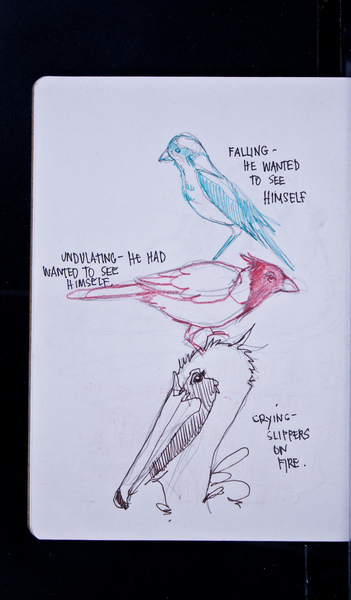 FALLING-
HE WANTED
TO SEE
HIMSELF
UNDULATING- HE HAD
WANTED TO SEE
HIMSELF.
CRYING-
SLIPPERS
ON
FIRE.